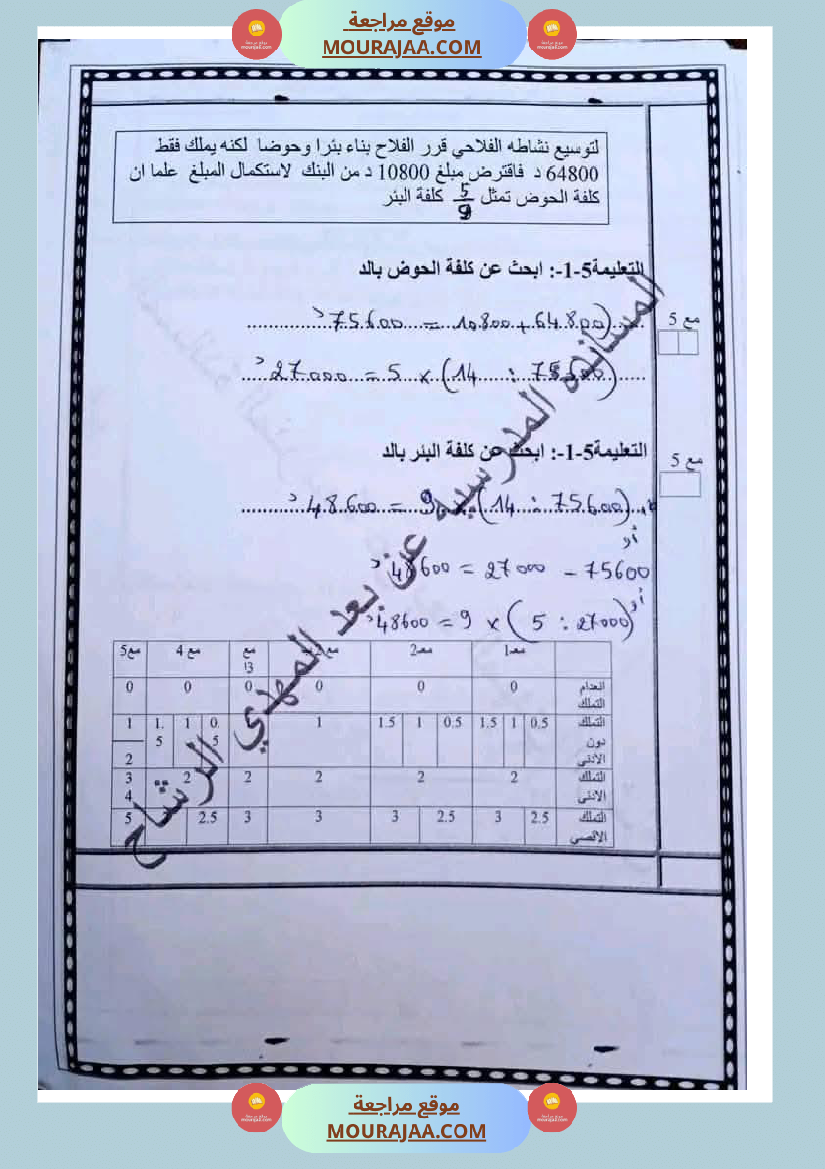 موقع مراجعة
MOURAJAA.COM
لتوسيع نشاطه الفلاحي قرر الفلاح بناء بئرا وحوضا لكنه يملك فقط
64800 د فاقترض مبلغ 10800 د من البنك لاستكمال المبلغ علما ان
كلفة الحوض تمثل 5/9 كلفة البئر
التعليمة5-1-: ابحث عن كلفة الحوض بالد
مع 5
(64.800 + 10.800 = 75.600 د
(75600 : 14) × 5 = 27000 د
التعليمة5-1-: ابحث عن كلفة البئر بالد
مع 5
(75600 : 14) × 9 = 48.600 د
أو
75600 – 27000 = 48600 د
أو
(27000 : 5) × 9 = 48600 د
معـ1 معـ2 مع 2 مع 3ا مع 4 مع5
انعدام التملك 0 0 0 0 0 0
التملك دون الأدنى 0.5 1 1.5 0.5 1 1.5 1 0.5 1 1.5 1 2
التملك الأدنى 2 2 2 2 2 3 4
التملك الأقصى 2.5 3 2.5 3 3 3 2.5 5
المساندة المدرسية عن بعد المهدي الرشاح
موقع مراجعة
MOURAJAA.COM